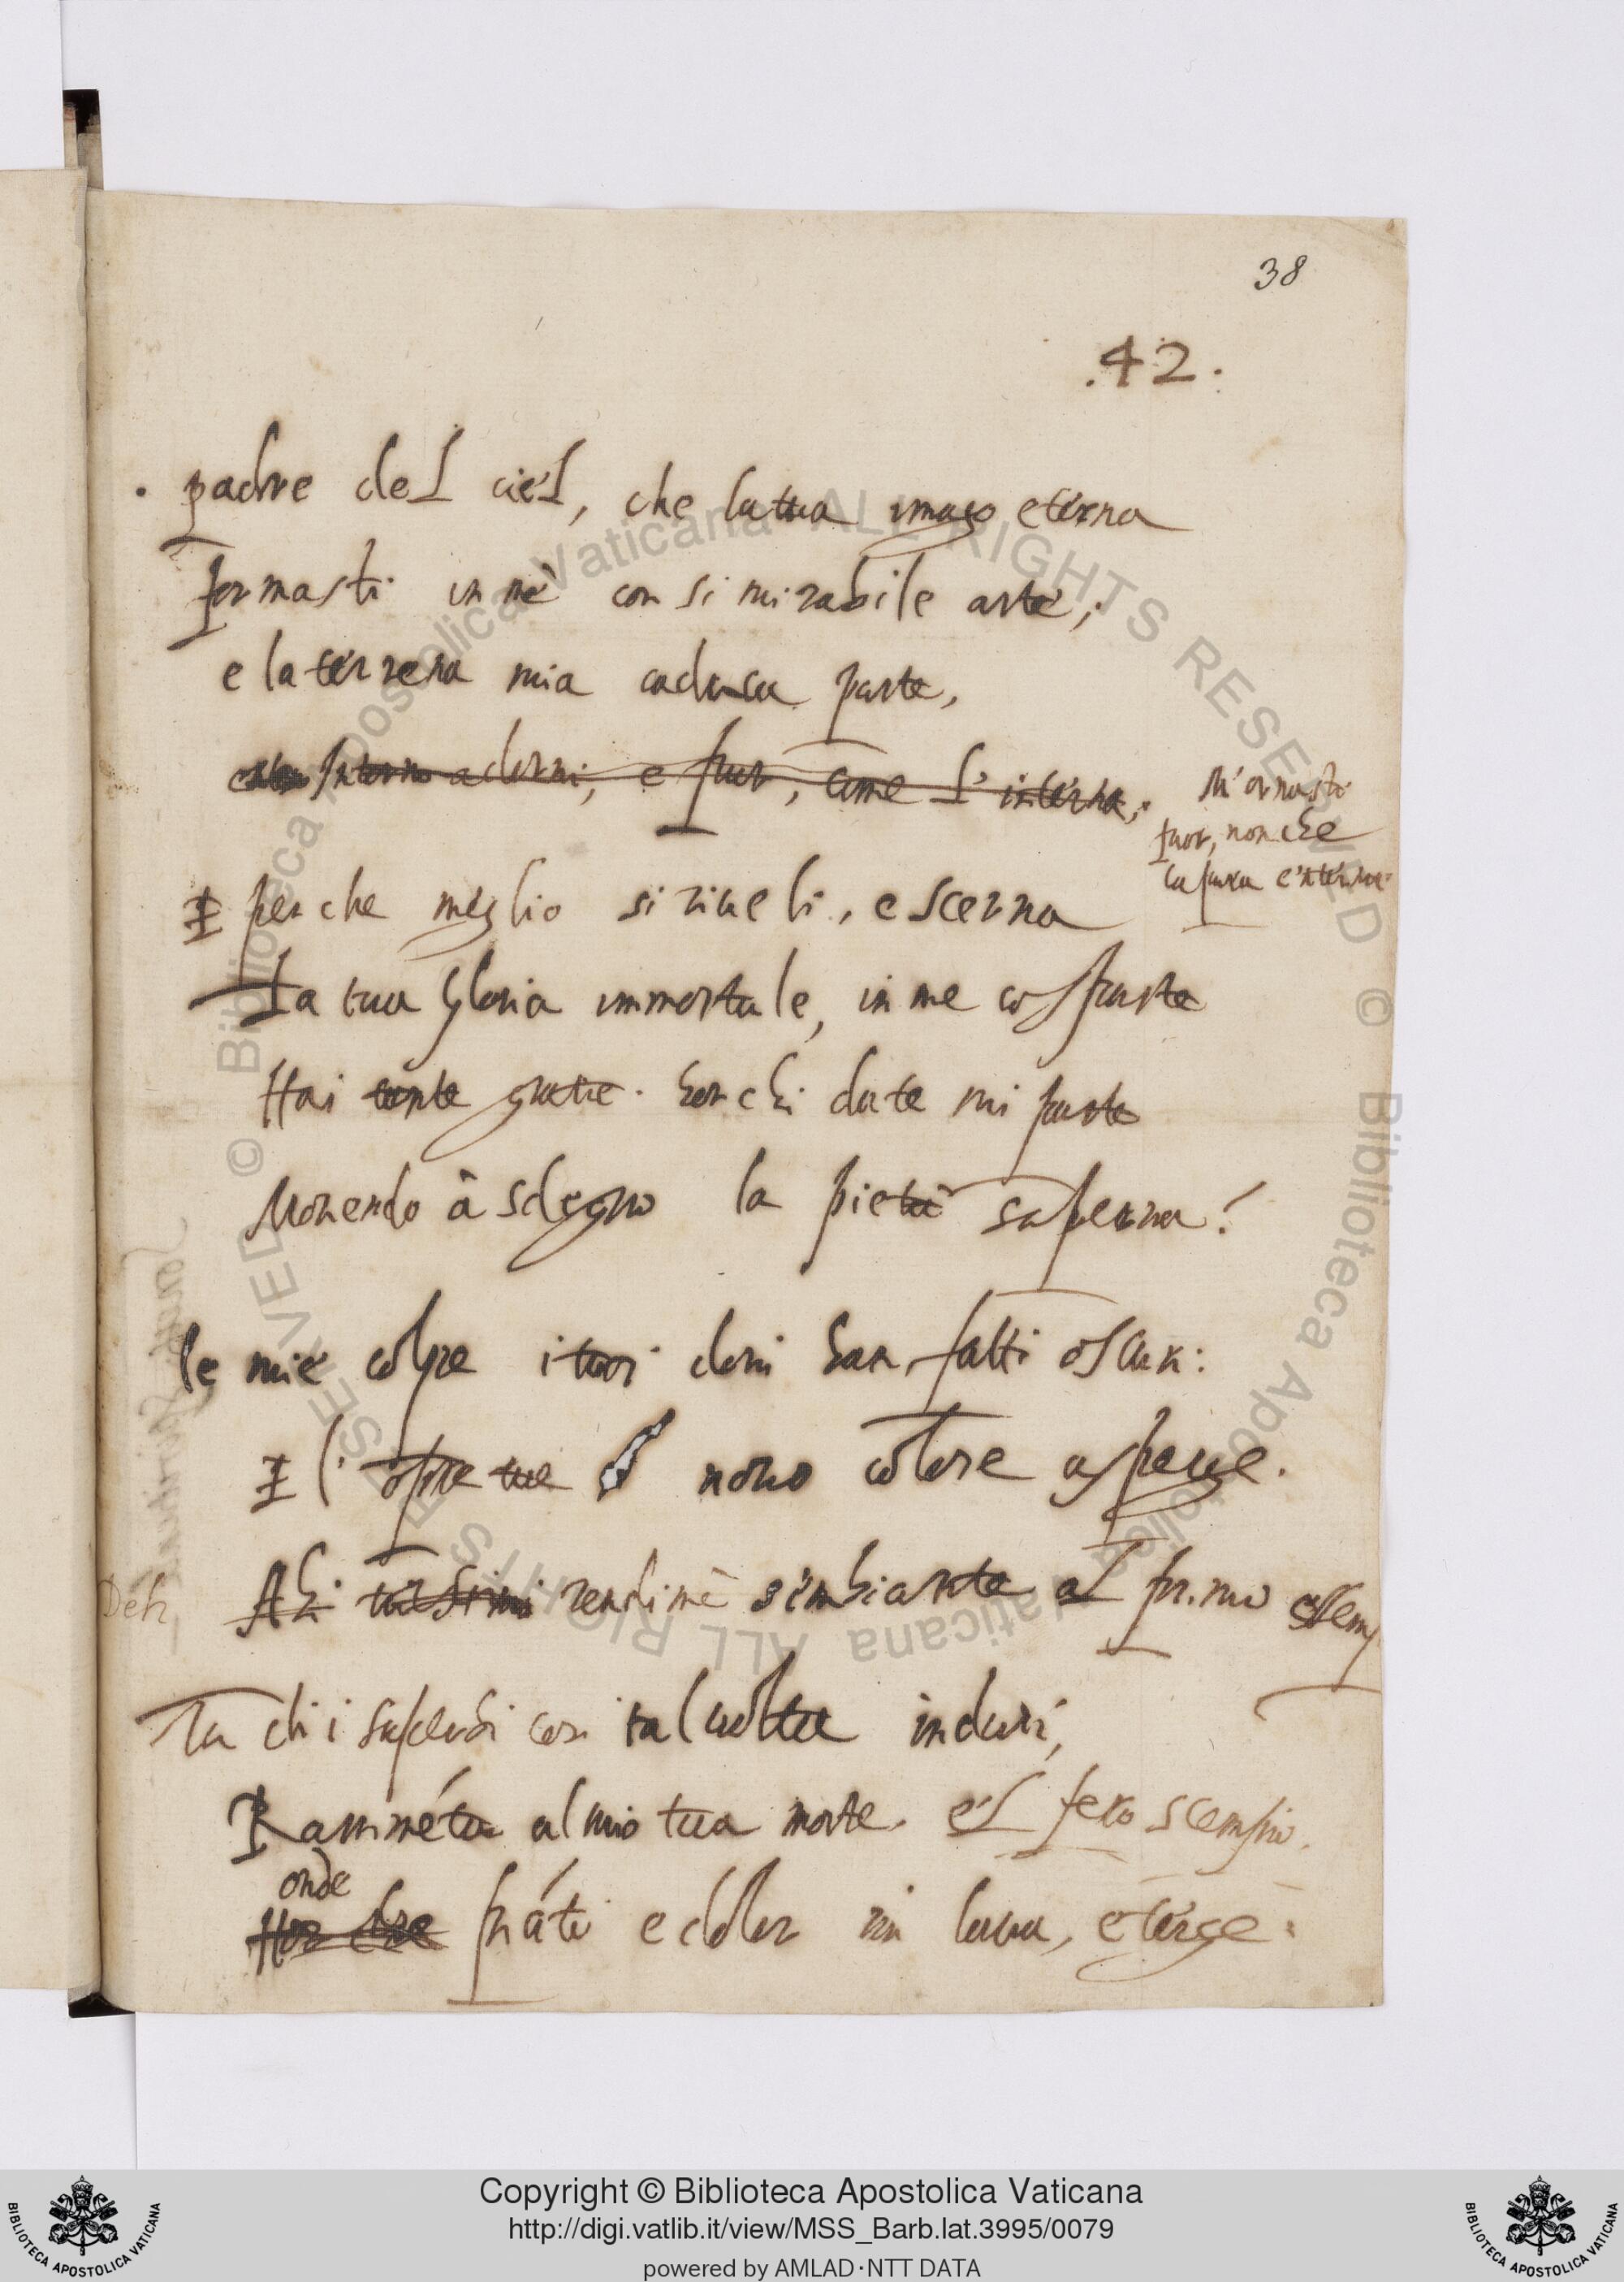 38
.42.
Padre del ciel, che la tua imago eterna
Formasti in me con si mirabile arte;
e la terrena mia caduca parte,
adorni, e fuor, come l'interna;
M'ornasti
fuor, non che
la pura e'nterna
E perche meglio si riveli, e scerna
La tua gloria immortale, in me cosparte
Hai tante gratie. hor chi da te mi parte
Movendo à sdegno la pietà superna?
le mie colpe i tuoi doni han fatti oscuri:
E l'opre tue novo colore asperge.
Deh
Ahi rendimi sembiante al primo essemp
Tu ch'i superbi cori talvolta induri,
Rammenta al mio tua morte. e'l fero scempio.
onde
Hor che pianti e dolor in lava, e terge.
© Biblioteca Apostolica Vaticana ALL RIGHTS RESERVED
Copyright © Biblioteca Apostolica Vaticana
http://digi.vatlib.it/view/MSS_Barb.lat.3995/0079
powered by AMLAD·NTT DATA
BIBLIOTECA APOSTOLICA VATICANA
BIBLIOTECA APOSTOLICA VATICANA